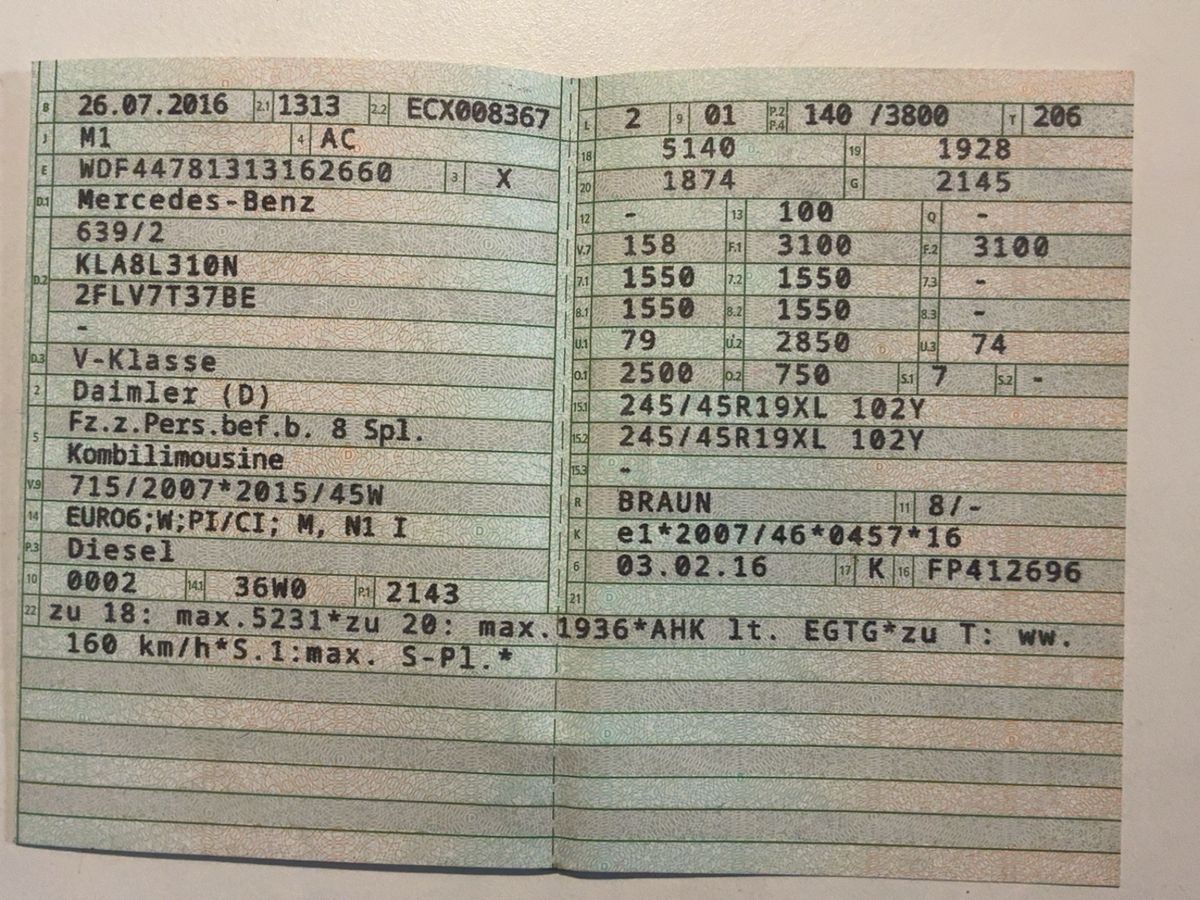 B 26.07.2016 2.1 1313 2.2 ECX008367
J M1 4 AC
E WDF44781313162660 3 X
D.1 Mercedes-Benz
639/2
D.2 KLA8L310N
2FLV7T37BE
-
D.3 V-Klasse
2 Daimler (D)
5 Fz.z.Pers.bef.b. 8 Spl.
Kombilimousine
V.9 715/2007*2015/45W
14 EURO6;W;PI/CI; M, N1 I
P.3 Diesel
10 0002 14.1 36W0 P.1 2143
L 2 9 01 P.2 P.4 140 /3800 T 206
18 5140 19 1928
20 1874 G 2145
12 - 13 100 Q -
V.7 158 F.1 3100 F.2 3100
7.1 1550 7.2 1550 7.3 -
8.1 1550 8.2 1550 8.3 -
U.1 79 U.2 2850 U.3 74
O.1 2500 O.2 750 S.1 7 S.2 -
15.1 245/45R19XL 102Y
15.2 245/45R19XL 102Y
15.3 -
R BRAUN 11 8/-
K e1*2007/46*0457*16
6 03.02.16 17 K 16 FP412696
21
22 zu 18: max.5231*zu 20: max.1936*AHK lt. EGTG*zu T: ww.
160 km/h*S.1:max. S-Pl.*